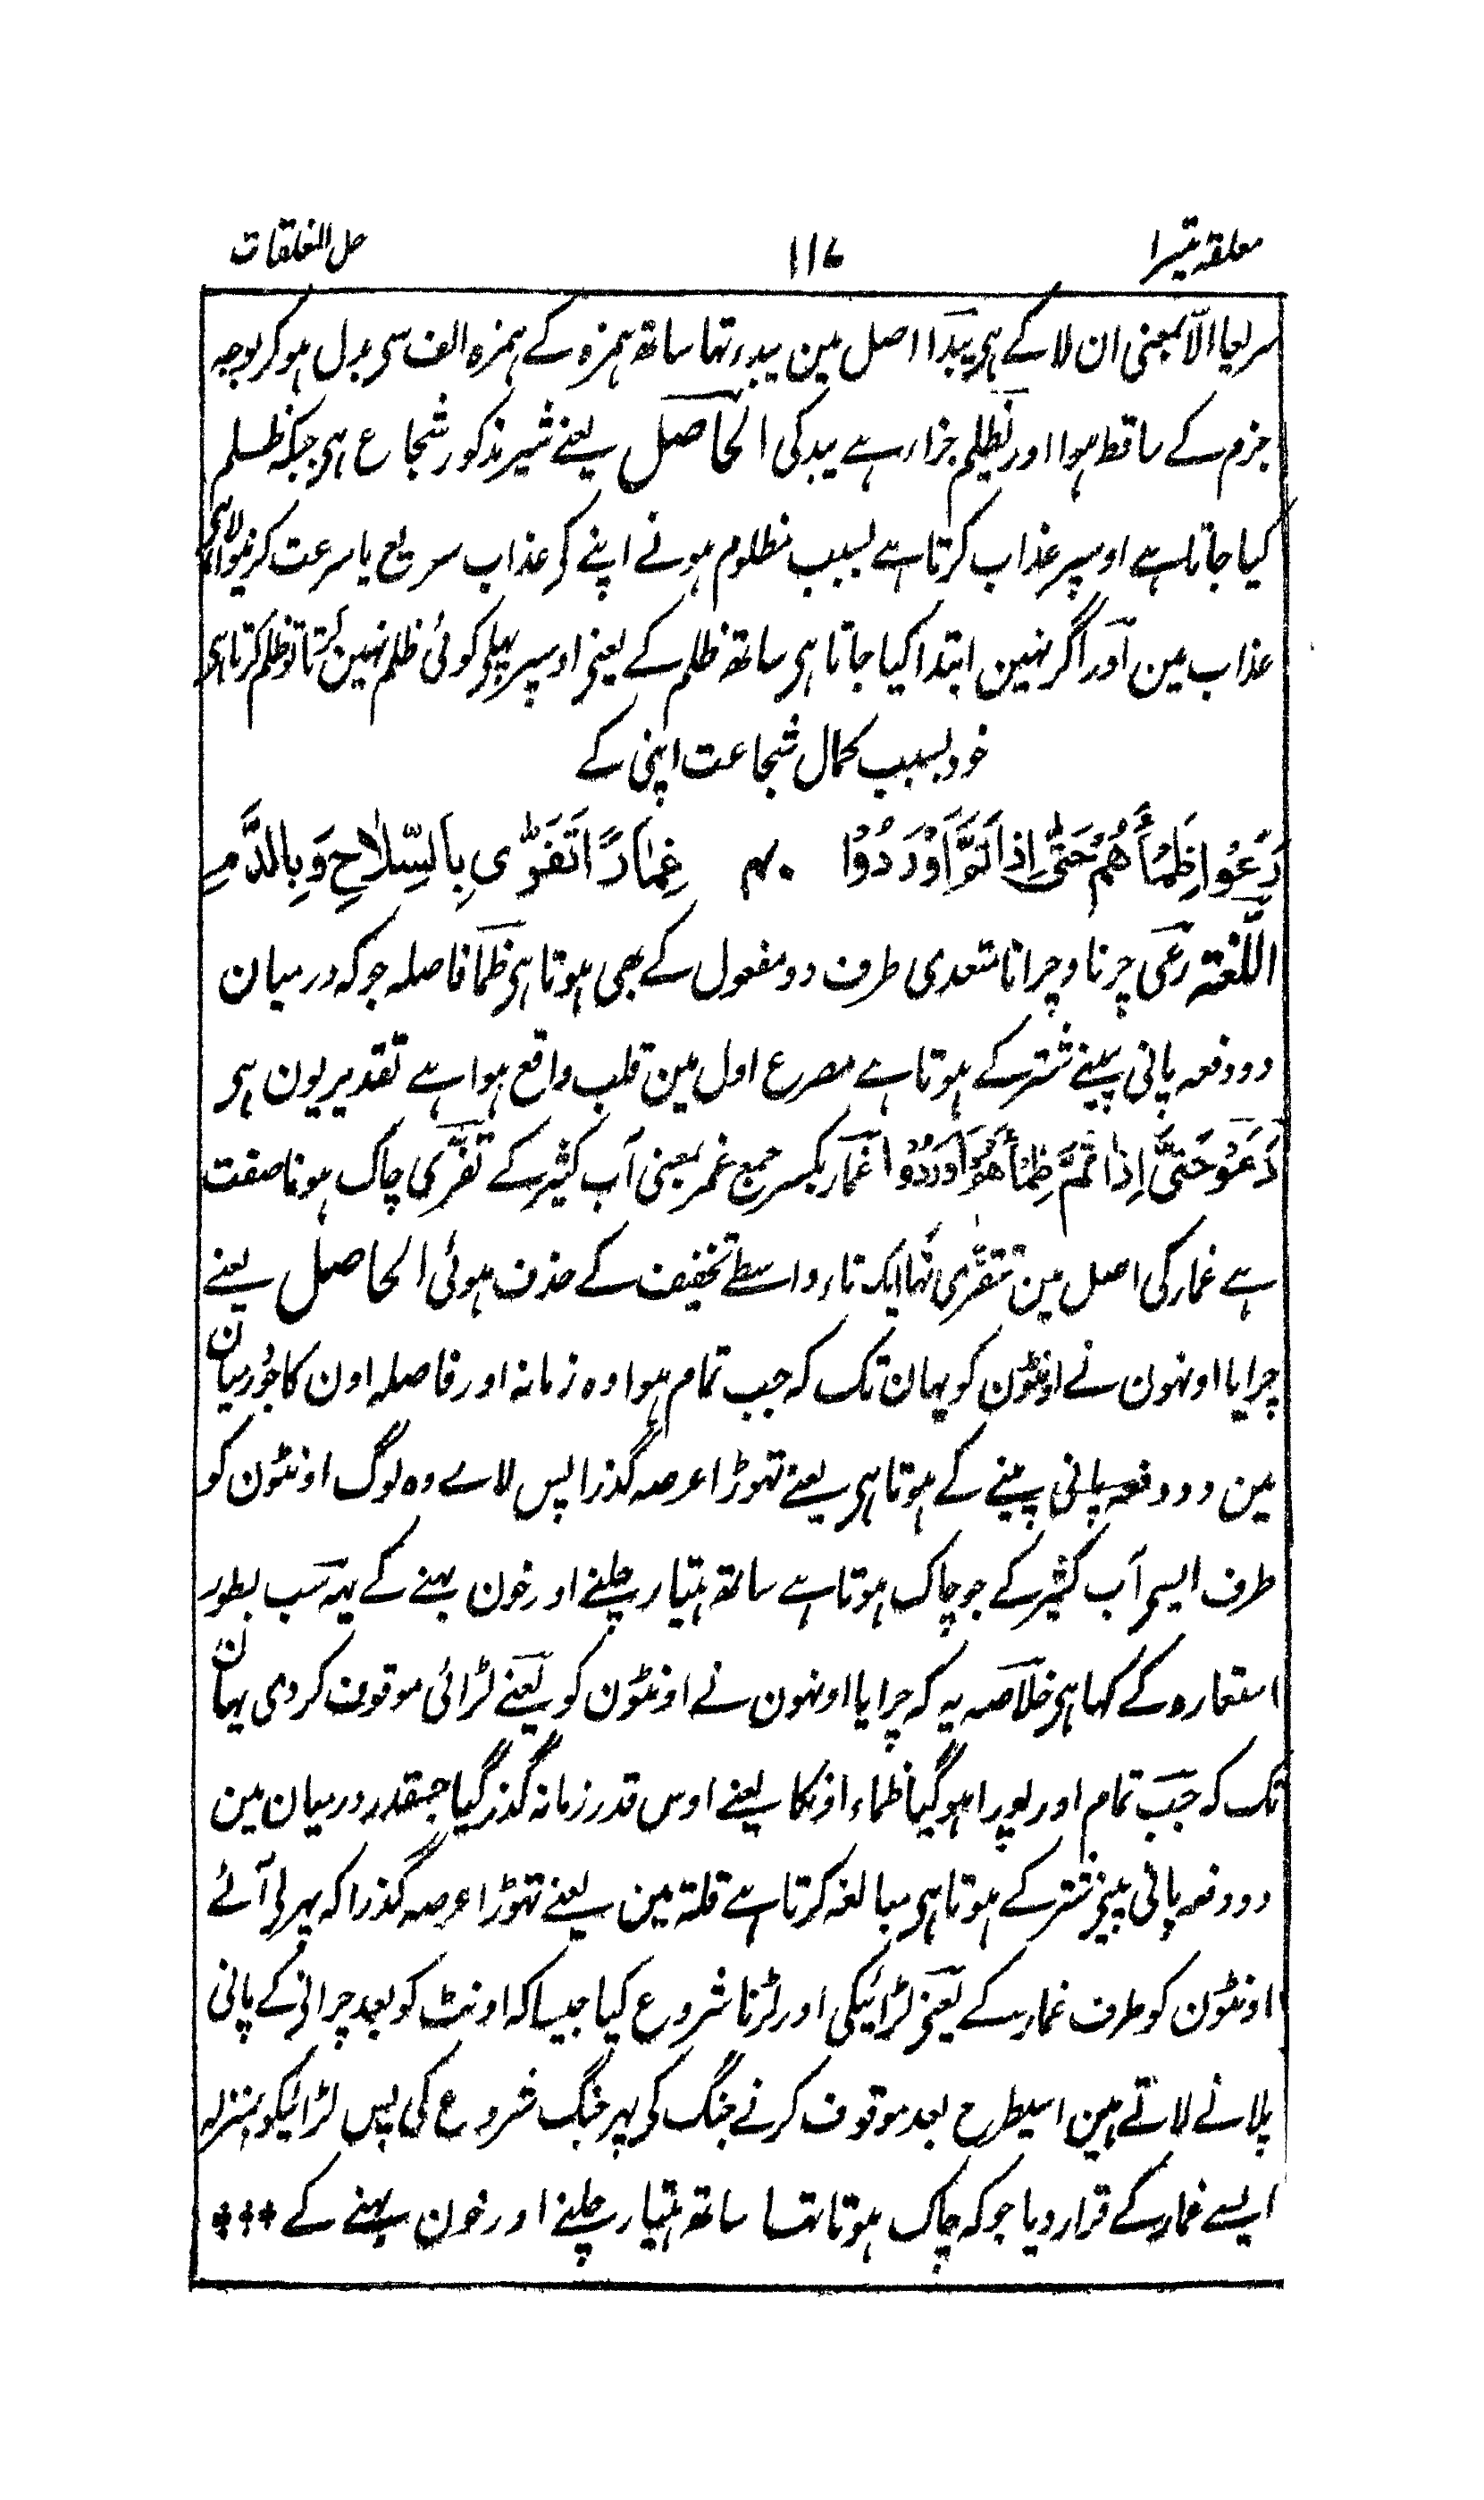 معلقہ تیسرا ۱۱۷ حل المغلقات
سریعا الّا بمعنی ان لا کے ہی یبدَا اصل مین یبدء تہا ساتھ ہمزہ کے ہمزہ الف سی بدل ہوکر بوجہ
جزم کے ساقط ہوا اور یظلم جزا رہے یبد کی الحاصل یعنے شیر مذکور شجاع ہی جبکہ ظلم
کیا جاتا ہے اوسپر عذاب کرتا ہے بسبب مظلوم ہونے اپنے کی عذاب سریع یا سرعت کرنیوالا ہی
عذاب مین اور اگر نہین ابتدا کیا جاتا ہی ساتھ ظلم کے یعنی اوسپر پہلی کوئی ظلم نہین کرتا تو ظلم کرتا ہی
خود بسبب کمال شجاعت اپنی کے
رَعَوْا ظِمْأَهُمْ حَتّٰى اِذَا تَمَّ اَوْرَدُوْا ۴۰ غِمَارًا تَفَرّٰى بِالسِّلَاحِ وَبِالدَّمِ
اللّغتہ رعی چرنا و چرانا متعدی طرف دو مفعول کے بھی ہوتا ہی ظمأ فاصلہ جو کہ درمیان
دو دفعہ پانی پینے شتر کے ہوتا ہے مصرع اول مین قلب واقع ہوا ہے تقدیر یون ہی
رَعَوْ حَتّٰى اِذَا تَمَّ ظِمْأُهُمْ اَوْرَدُوْا غمار بکسر جمع غمر بمعنی آب کثیر کے تفرّی چاک ہونا صفت
ہے غمار کی اصل مین تتفرّی تہا ایک تار واسطے تخفیف کے حذف ہوئی الحاصل یعنے
چرایا اونہون نے اونٹون کو یہان تک کہ جب تمام ہوا وہ زمانہ اور فاصلہ اون کا جو درمیان
مین دو دفعہ پانی پینے کے ہوتا ہی یعنے تہوڑا عرصہ گذرا پس لائے وہ لوگ اونٹون کو
طرف ایسی آب کثیر کے جو چاک ہوتا ہے ساتھ ہتیار چلنے اور خون بہنے کے یہ سب بطور
استعارہ کے کہا ہی خلاصہ یہ کہ چرایا اونہون نے اونٹون کو یعنے لڑائی موقوف کردی یہان
تک کہ جب تمام اور پورا ہوگیا ظماء اونکا یعنے اوس قدر زمانہ گذر گیا جسقدر درمیان مین
دو دفعہ پانی پینی شتر کے ہوتا ہی مبالغہ کرتا ہے قلۃ مین یعنے تہوڑا عرصہ گذرا کہ پہر لی آئے
اونٹون کو طرف غمار کے یعنی لڑائیکی اور لڑنا شروع کیا جیسا کہ اونٹ کو بعد چرانی کے پانی
پلانے لاتے ہین اسیطرح بعد موقوف کرنے جنگ کی پہر جنگ شروع کی پس لڑائیکو بمنزلہ
ایسے غمار کے قرار دیا جو کہ چاک ہوتا تہا ساتھ ہتیار چلنے اور خون بہنے کے ***